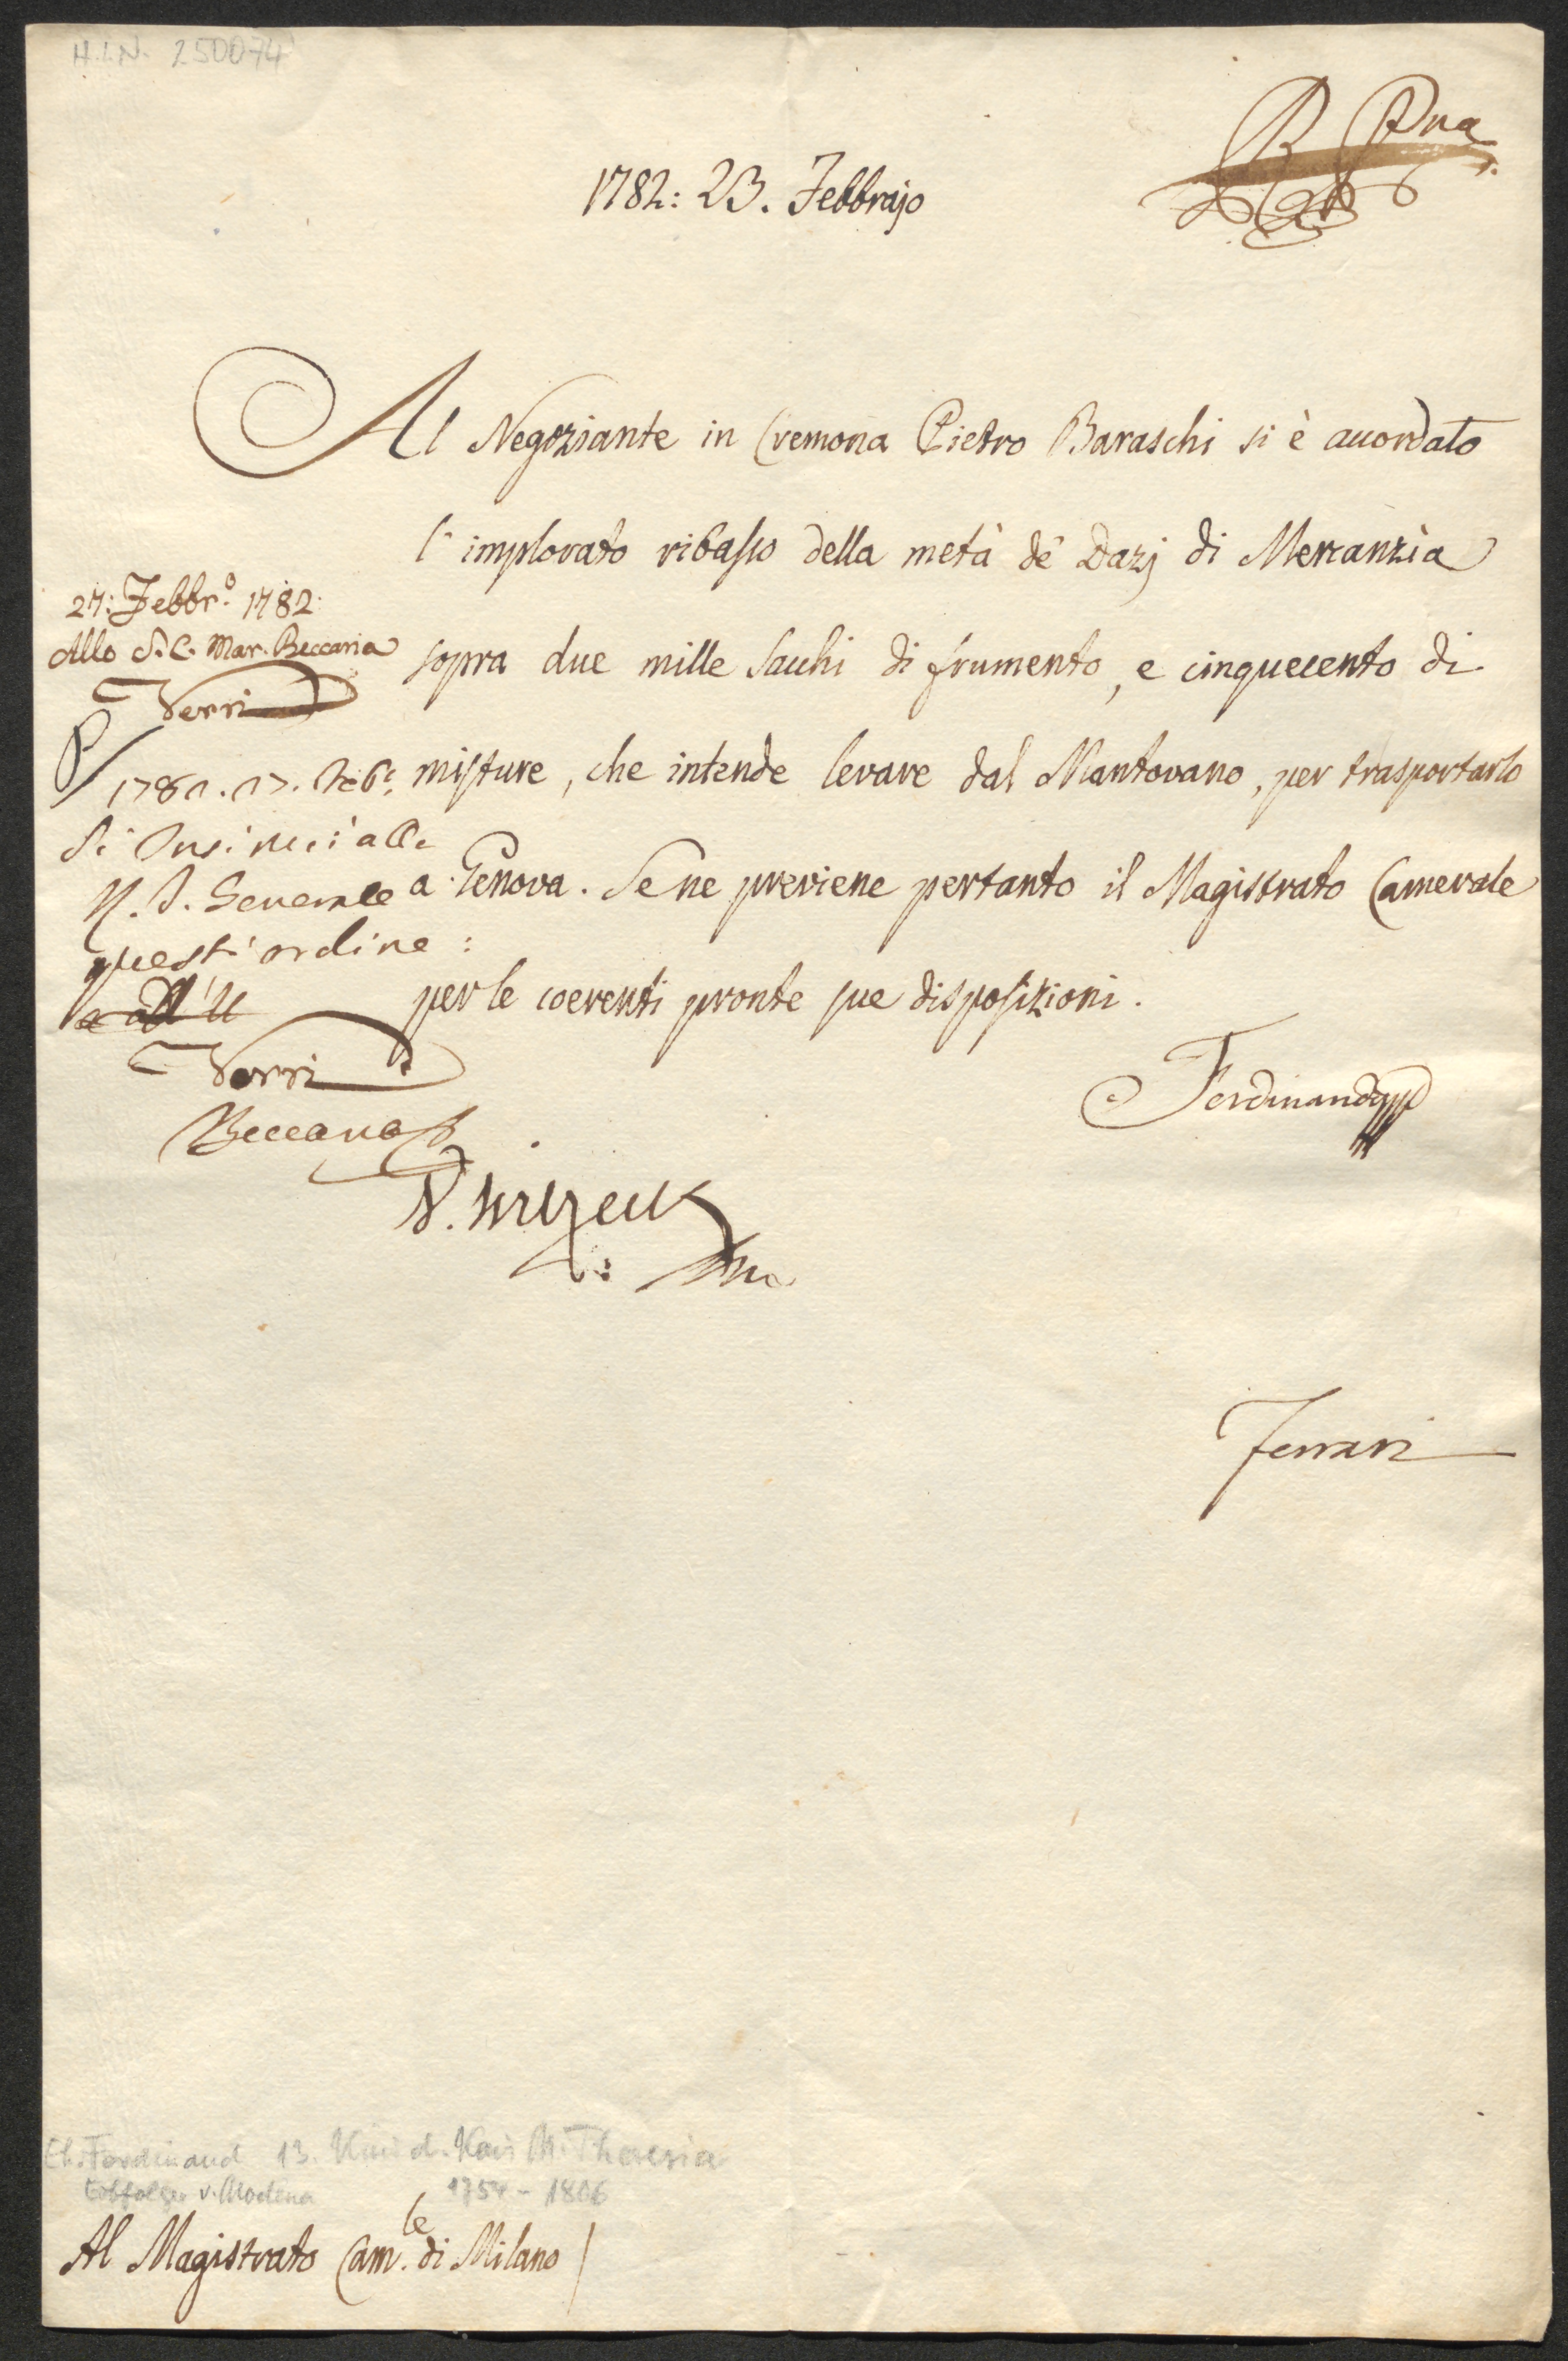 H.I.N. 250074
1782: 23. Febbrajo
Al Negoziante in Cremona Pietro Baraschi si è accordato
l'implorato ribasso della metà de' Dazj di Mercanzia
sopra due mille Sacchi di frumento, e cinquecento di
misture, che intende levare dal Mantovano, per trasportarlo
a Genova. Se ne previene pertanto il Magistrato Camerale
per le coerenti pronte sue disposizioni.
27: Febbr.º 1782:
Allo S. C. Mar. Beccaria
Verri
Si
Generale
quest'ordine:
Verri
Beccaria
Ferdinando
Ferrari
Eh. Ferdinand 13. Kind d. Kais M. Theresia
v. Modena 1754 - 1806
Al Magistrato Cam.le di Milano